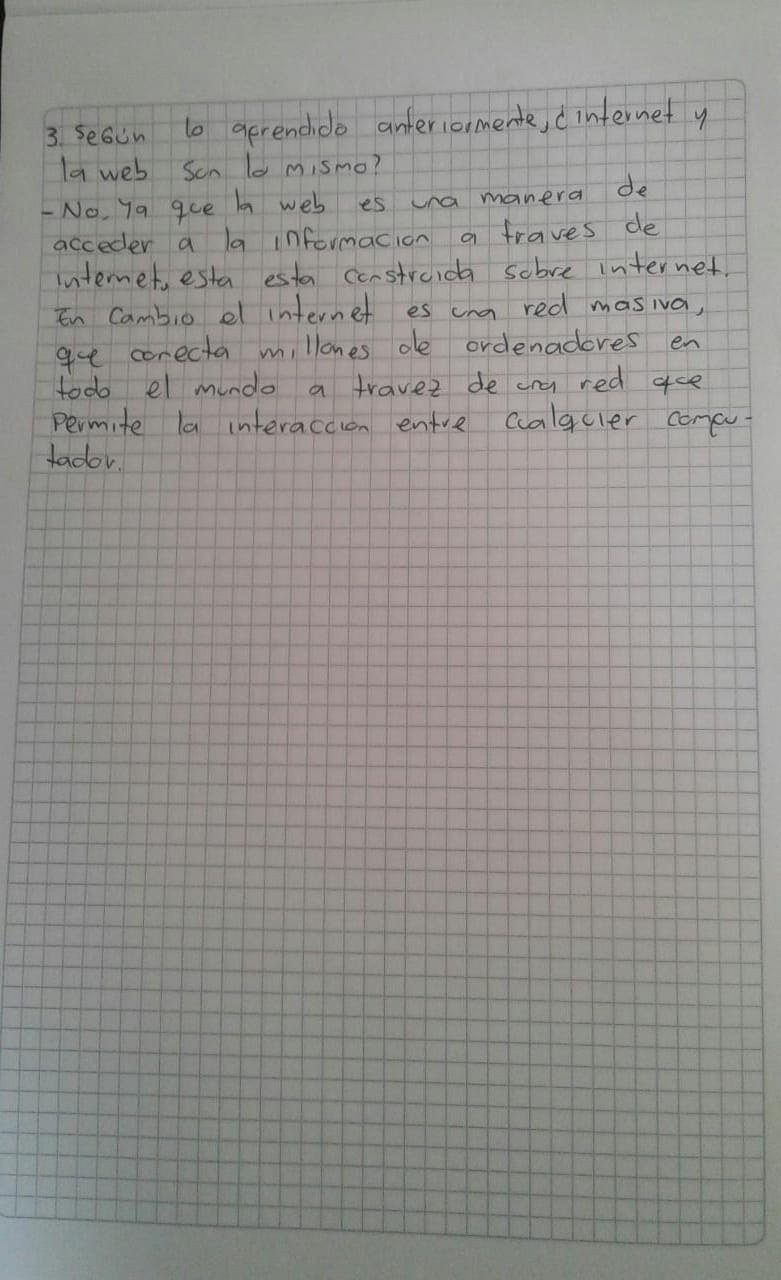 3. Según lo aprendido anteriormente, ¿internet y
la web son lo mismo?
- No. Ya que la web es una manera de
acceder a la informacion a traves de
internet, esta esta construida sobre internet.
En Cambio el internet es una red masiva,
que conecta millones de ordenadores en
todo el mundo a travez de una red que
Permite la interaccion entre cualquier compu-
tador.